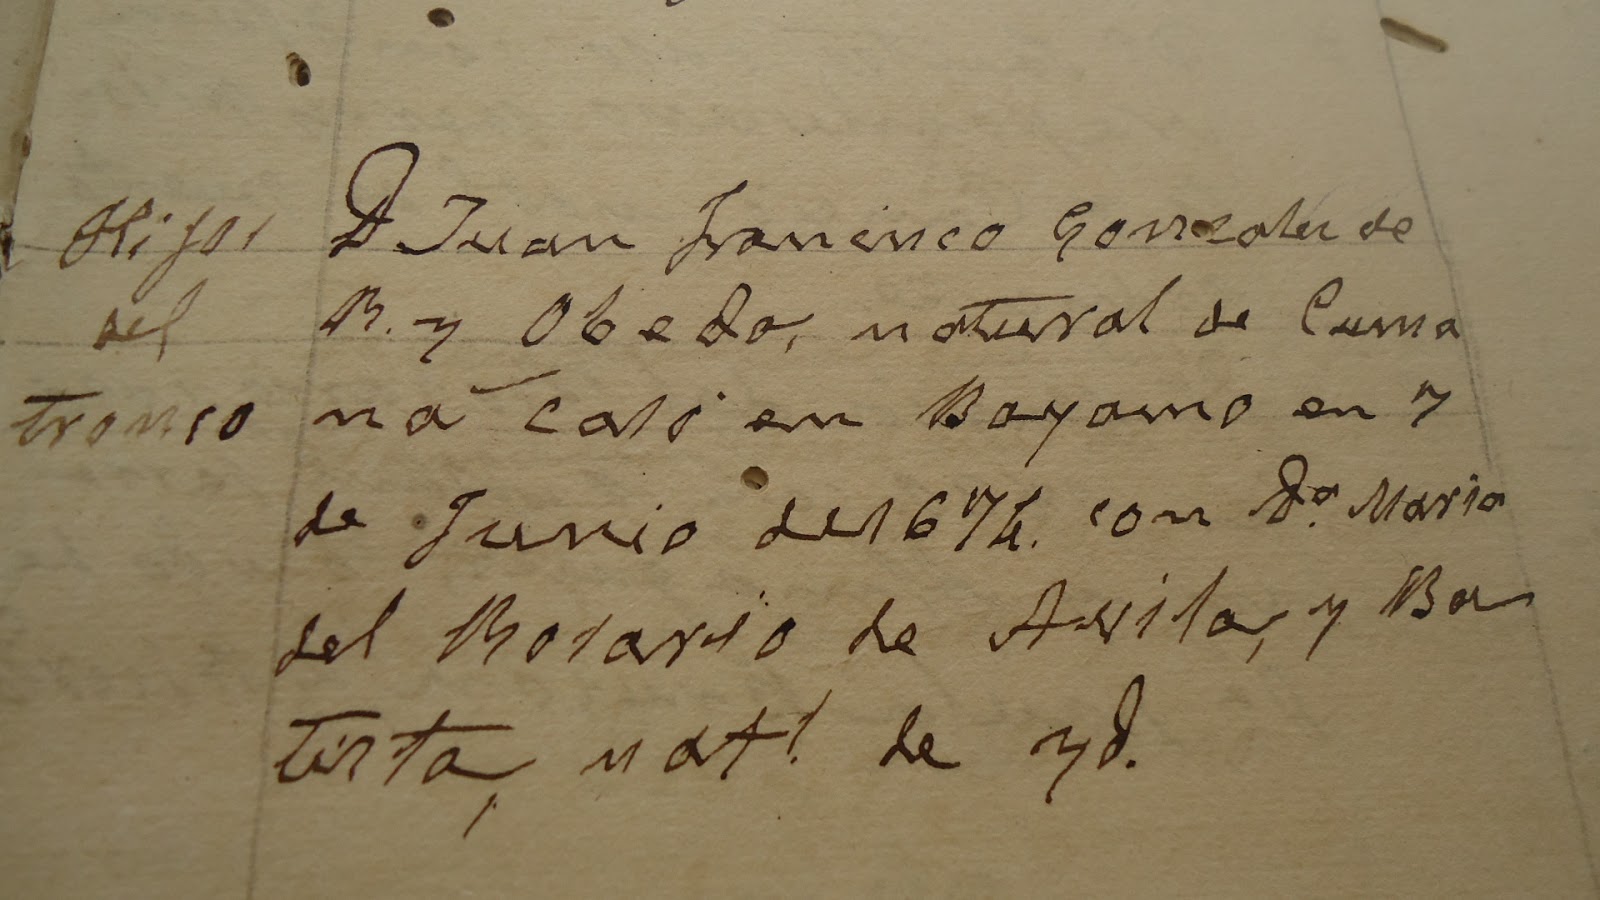 Hijos
del
tronco
D Juan Francisco Gonzales de
R. y Obedo, natural de Cuma
na casó en Bayamo en 7
de Junio de 1674. con Dª. Maria
del Rosario de Avila, y Ba
tista, natl. de yd.